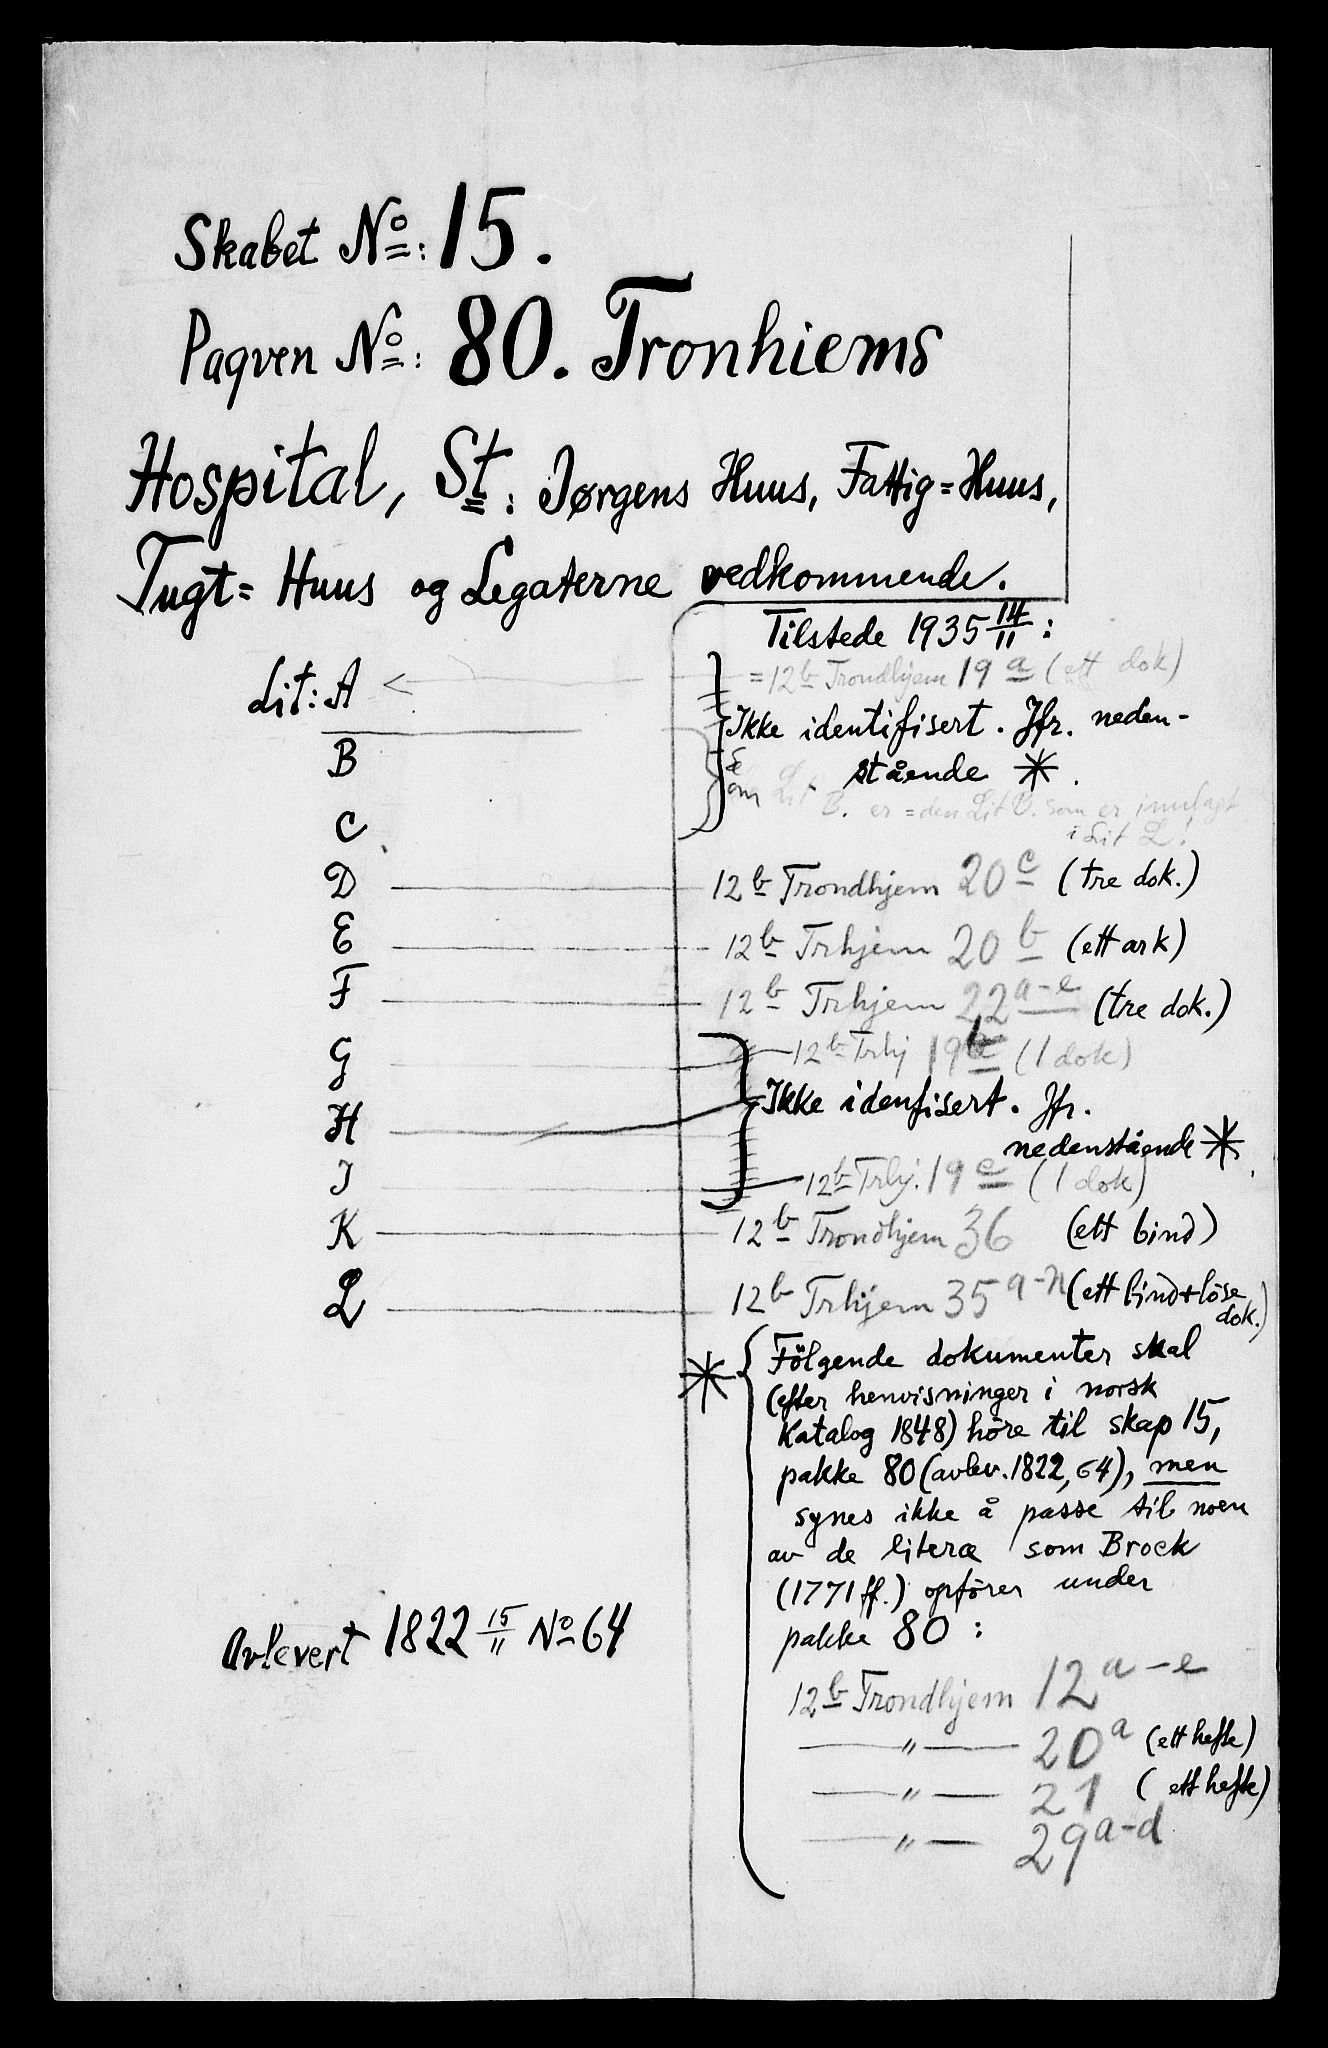 Skabet No: 15.
Paqven No: 80. Tronhiems
Hospital, St: Jørgens Huus, Fattig=Huus,
Tugt= Huus og Legaterne vedkommende.
Tilstede 1935 14/11 :
Lit: A = 12b Trondhjem 19 a (ett dok)
Ikke identifisert. Jfr. neden-
stående *.
B
Lit B. er = den Lit B. som er innlagt
i Lit L!
C
D 12b Trondhjem 20 c (tre dok.)
E 12b Trhjem 20 b (ett ark)
F 12b Trhjem 22 a-e (tre dok.)
G 12b Trhj 19 b (1 dok)
H Ikke idenfisert. Jfr.
nedenstående *
I 12b Trhj. 19 c (1 dok)
K 12b Trondhjem 36 (ett bind)
L 12b Trhjem 35 a-n (ett bind + löse
dok.)
* Fölgende dokumenter skal
(efter henvisninger i norsk
Katalog 1848) höre til skap 15,
pakke 80 (avlev. 1822, 64), men
synes ikke å passe til noen
av de literæ som Brock
(1771 ff.) opförer under
pakke 80 :
Avlevert 1822 15/11 No 64
12b Trondhjem 12 a-e
—〃— 20 a (ett hefte)
—〃— 21 (ett hefte)
—〃— 29 a-d